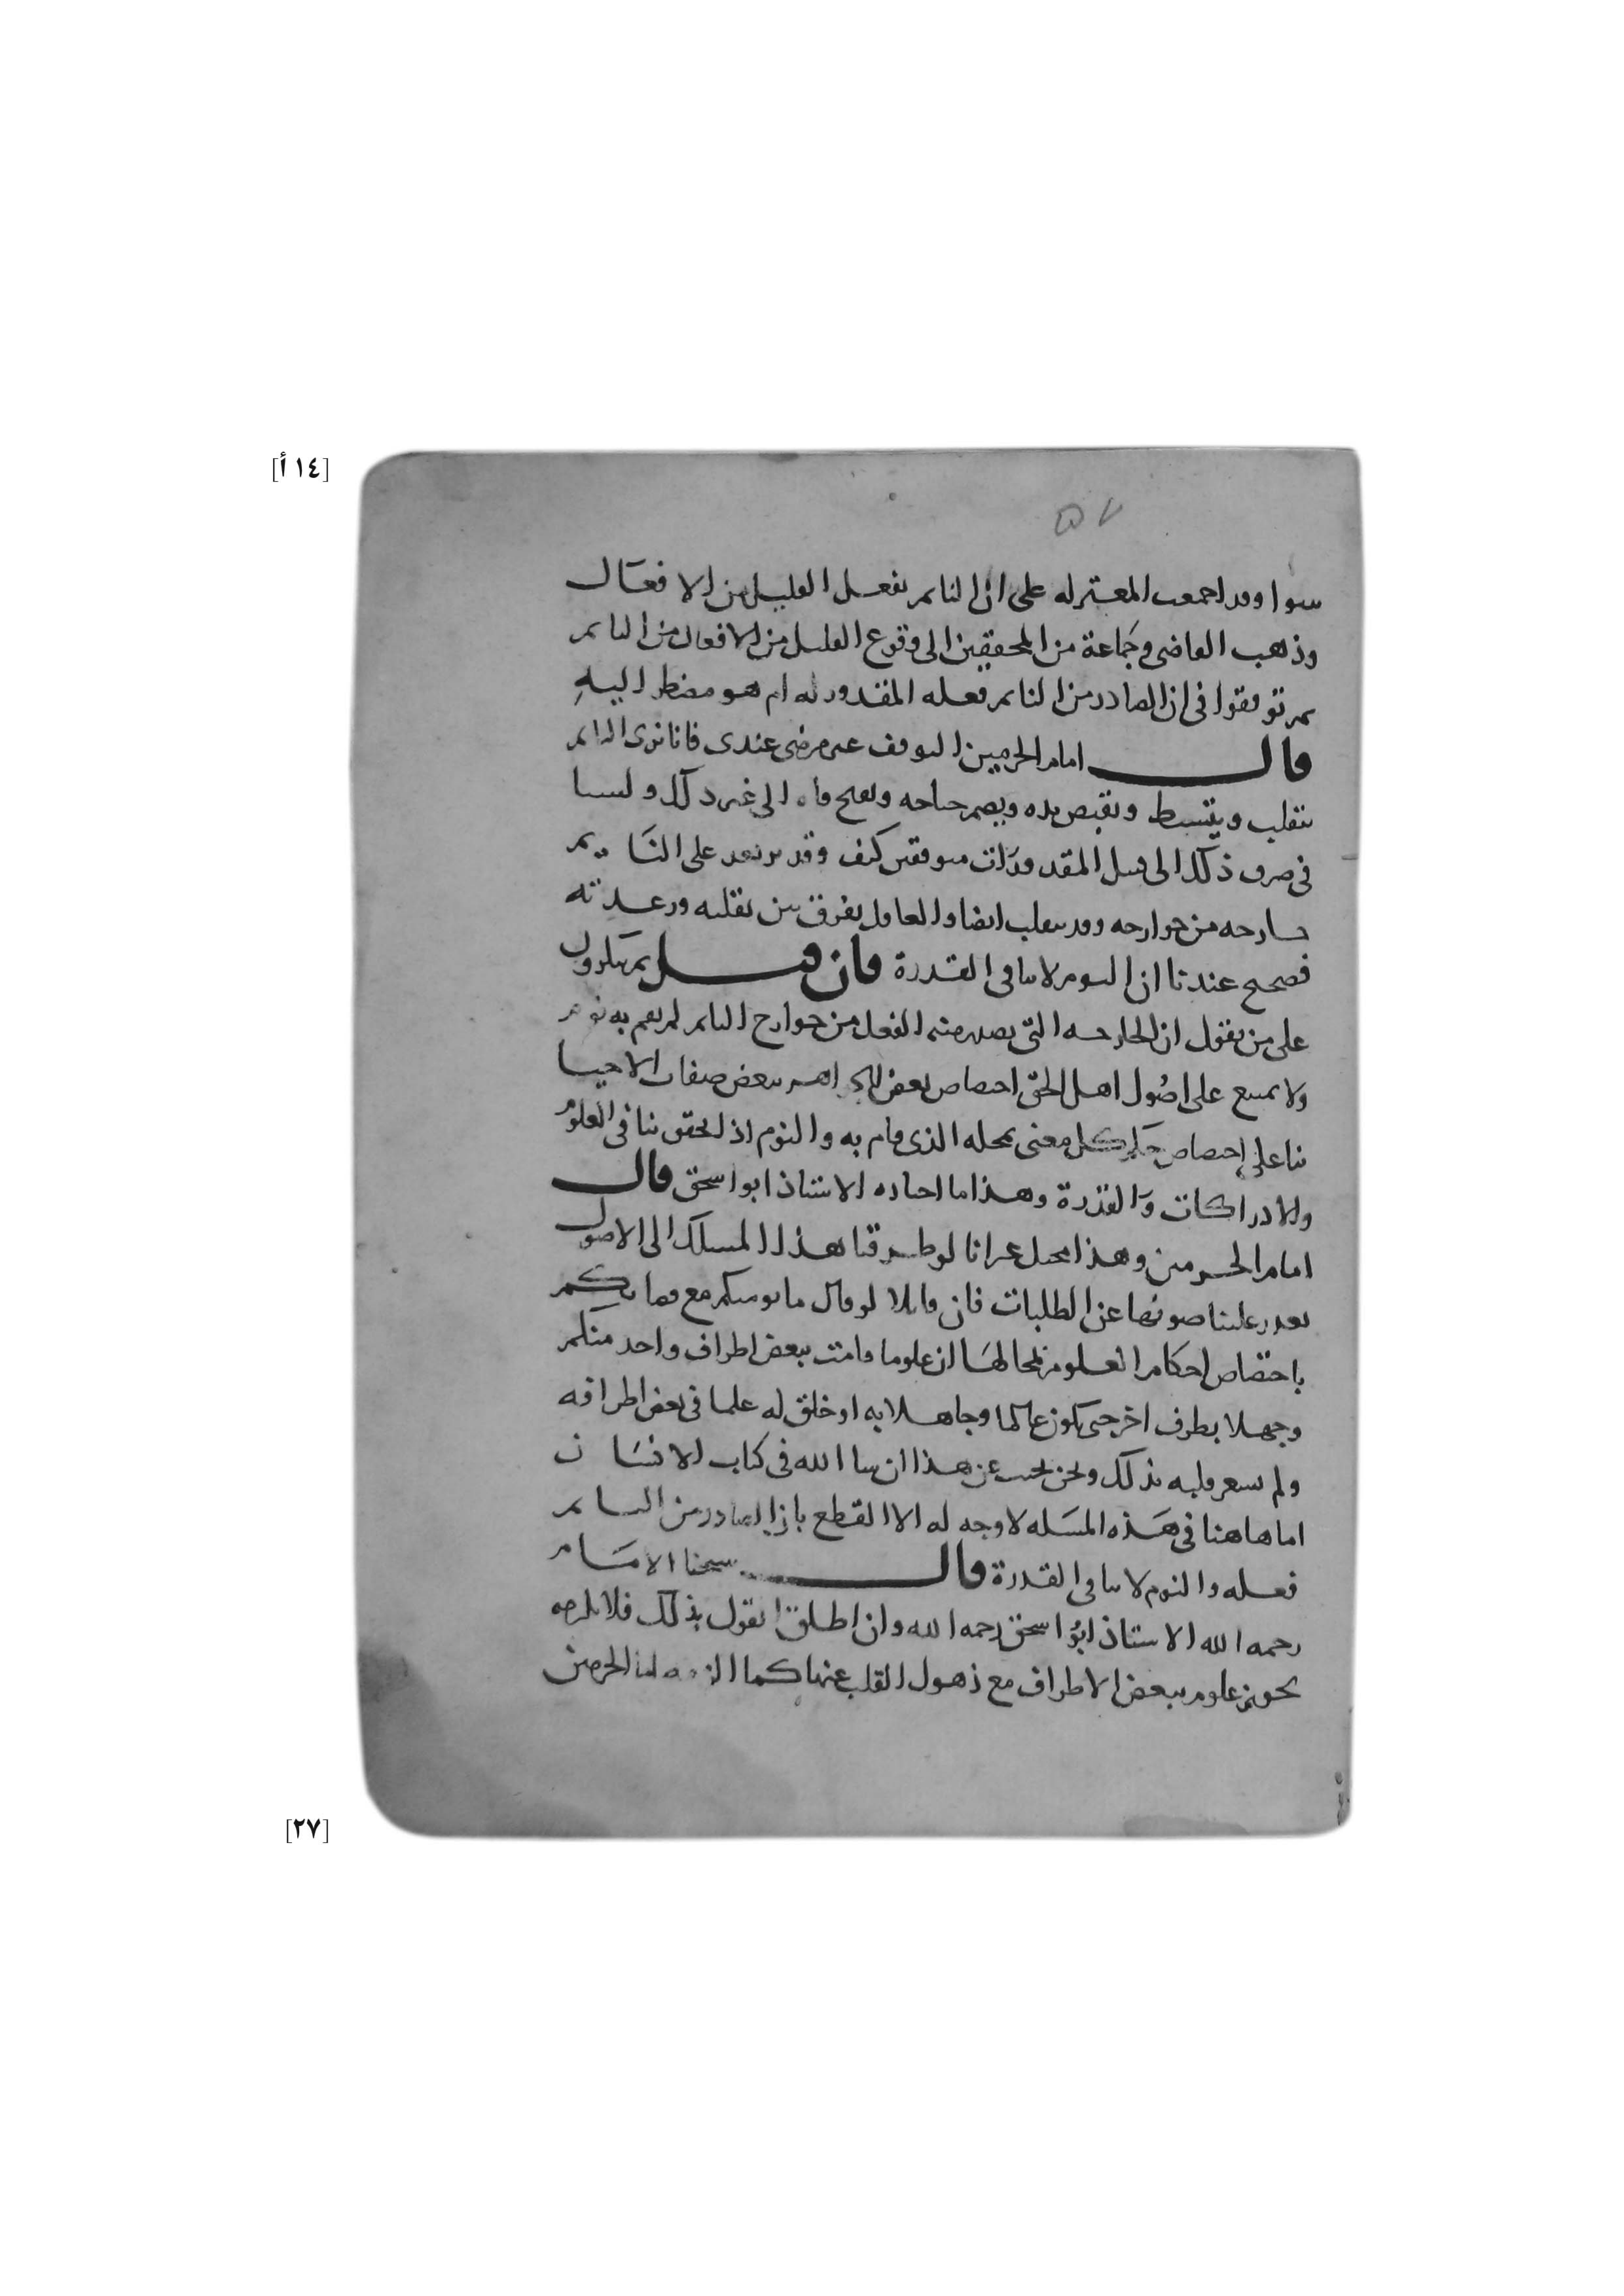 [١٤ أ]
٥٧
سوا وقد اجمعت المعتزله على ان النائم يفعل القليل من الافعال
وذهب القاضي وجماعة من المحققين الى وقوع القليل من الافعال من النائم
ثم توقفوا في ان الصادر من النائم فعله المقدور له ام هو مضطر اليه
قال امام الحرمين التوقف غير مرضي عندي فانا نرى النائم
يتقلب وينبسط ويقبض يده ويضم جناحه ويفتح فاه الى غير ذلك ولسنا
في صرف ذلك الى قبيل المقدورات متوقفين كيف وقد يرتعد على النايم
جارحه من جوارحه وقد يتقلب ايضا والعاقل يفرق بين تقلبه ورعدته
فصحح عندنا ان النوم لا ينافي القدرة فان قيل بم تنكرون
على من يقول ان الجارحه التي يصدر منها الفعل من جوارح النائم لم يقم به نوم
ولا يمتنع على اصول اهل الحق اختصاص بعض الجواهر ببعض صفات الاحيا
بنا على اختصاص حكم كل معنى بمحله الذي قام به والنوم اذا تحقق ينافي العلوم
والادراكات والقدرة وهذا ما اختاره الاستاذ ابو اسحق قال
امام الحرمين وهذا محتمل غير انا لو طرقنا هذا المسلك الى الاصول
تعذر علينا صونها عن الطلبات فان قايلا لو قال ما يومنكم مع قضايكم
باختصاص احكام العلوم بمحالها ان علوما قامت ببعض اطراف واحد منكم
وجهلا بطرف اخر حتى يكون عالما وجاهلا به او خلق له علما في بعض اطرافه
ولم يشعر قلبه بذلك ونحن نجيب عن هذا ان شا الله في كتاب الانسان
اما هاهنا في هذه المسله لا وجه له الا القطع بان الصادر من النائم
فعله والنوم لا ينافي القدرة قال شيخنا الامام
رحمه الله الاستاذ ابو اسحق رحمه الله وان اطلق القول بذلك فلا يلزمه
تجويز علوم ببعض الاطراف مع ذهول القلب عنها كما الزمه امام الحرمين
[٢٧]